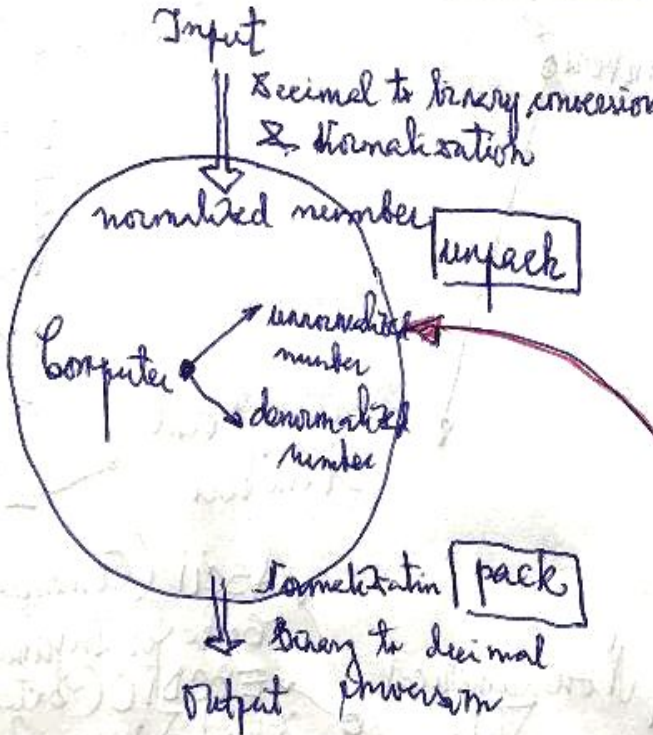 Input
Decimal to binary conversion
& Normalization
normalized number
unpack
unnormalized
number
Computer
denormalized
number
Normalizatin
pack
Binary to decimal
conversion
Output